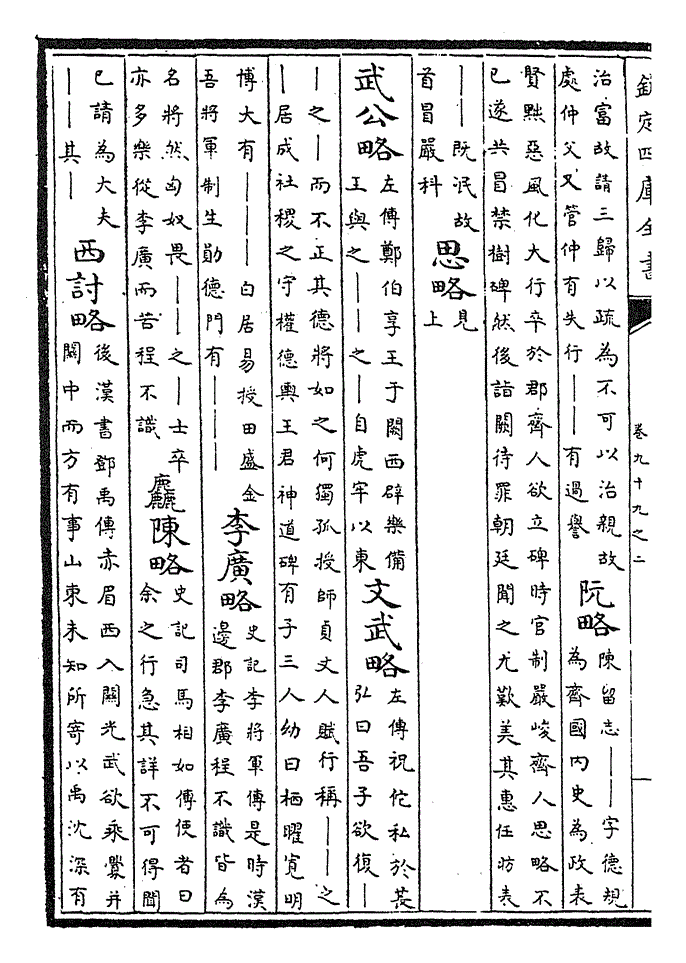 欽定四庫全書
卷九十九之二
治富故請三歸以疏為不可以治親故
處仲父又管仲有失行——有過譽
阮略
陳留志——字德規
為齊國内史為政表
賢黜惡風化大行卒於郡齊人欲立碑時官制嚴峻齊人思略不
已遂共冒禁樹碑然後詣闕待罪朝廷聞之尤歎美其惠任昉表
——既泯故
首冒嚴科
思略
見
上
武公略
左傳鄭伯享王于闕西辟樂備
王與之——之—自虎牢以東
文武略
左傳祝佗私於萇
弘曰吾子欲復—
—之—而不正其德將如之何獨孤授師貞丈人賦行稱——之
—居成社稷之守權德輿王君神道碑有子三人幼曰栖曜寛明
博大有———
白居易授田盛金
吾將軍制生勛德門有———
李廣略
史記李將軍傳是時漢
邊郡李廣程不識皆為
名將然匈奴畏——之—士卒
亦多樂從李廣而苦程不識
麤陳略
史記司馬相如傳使者曰
余之行急其詳不可得聞
已請為大夫
——其—
西討略
後漢書鄧禹傳赤眉西入關光武欲乘釁并
關中而方有事山東未知所寄以禹沈深有